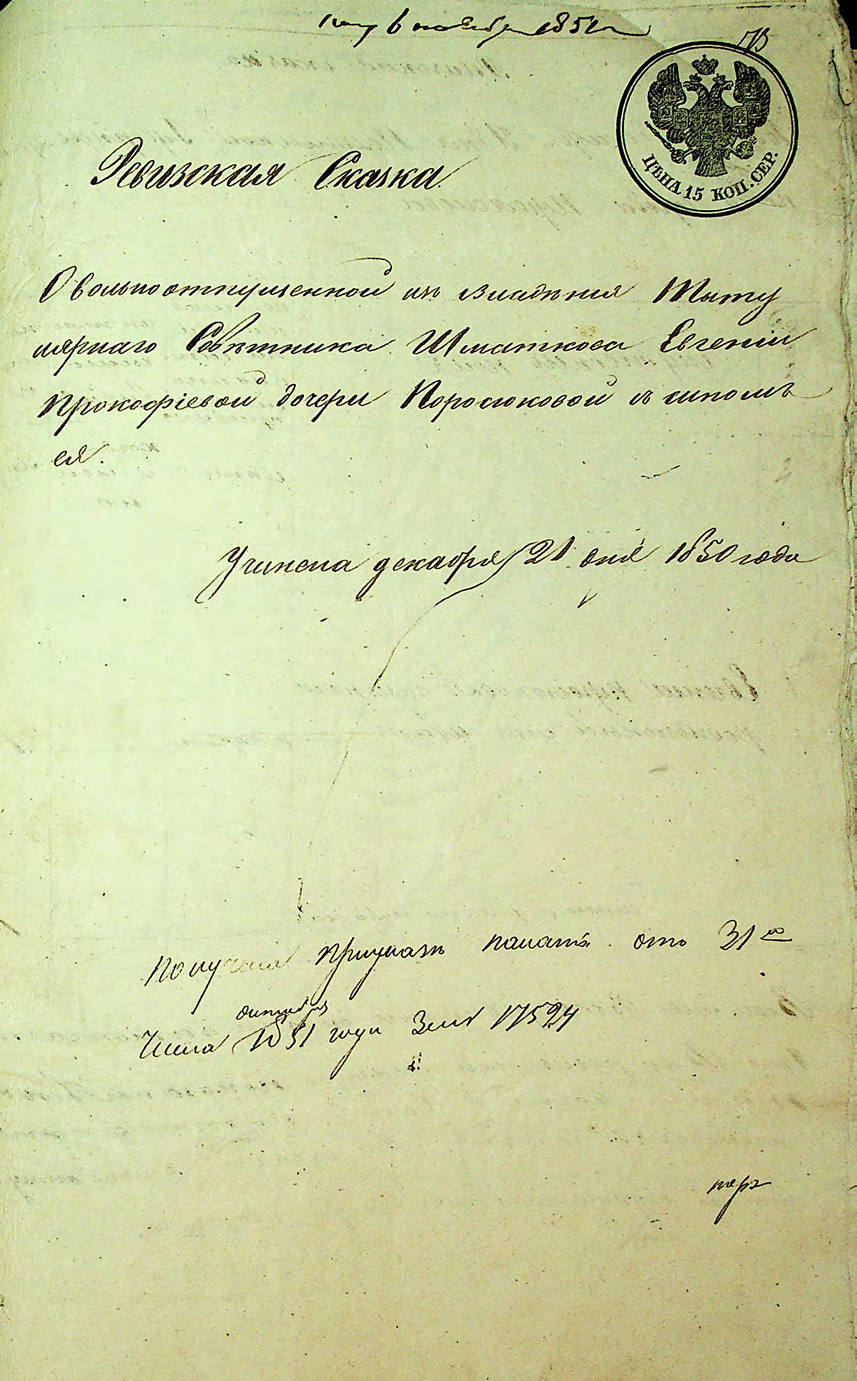 6 ноября 1851
73
ЦѢНА 15 КОП. СЕР.
Ревизская Сказка
О вольноотпущенной изъ владѣнія Титу
лярнаго Совѣтника Шматкова Евгеніи
Прокофіевой дочери Поросюковой съ сыномъ
ея.
Учинена декабря 21 дня 1850 года
Получена при указѣ палаты отъ 31го
октября
числа 1851 года за № 17524